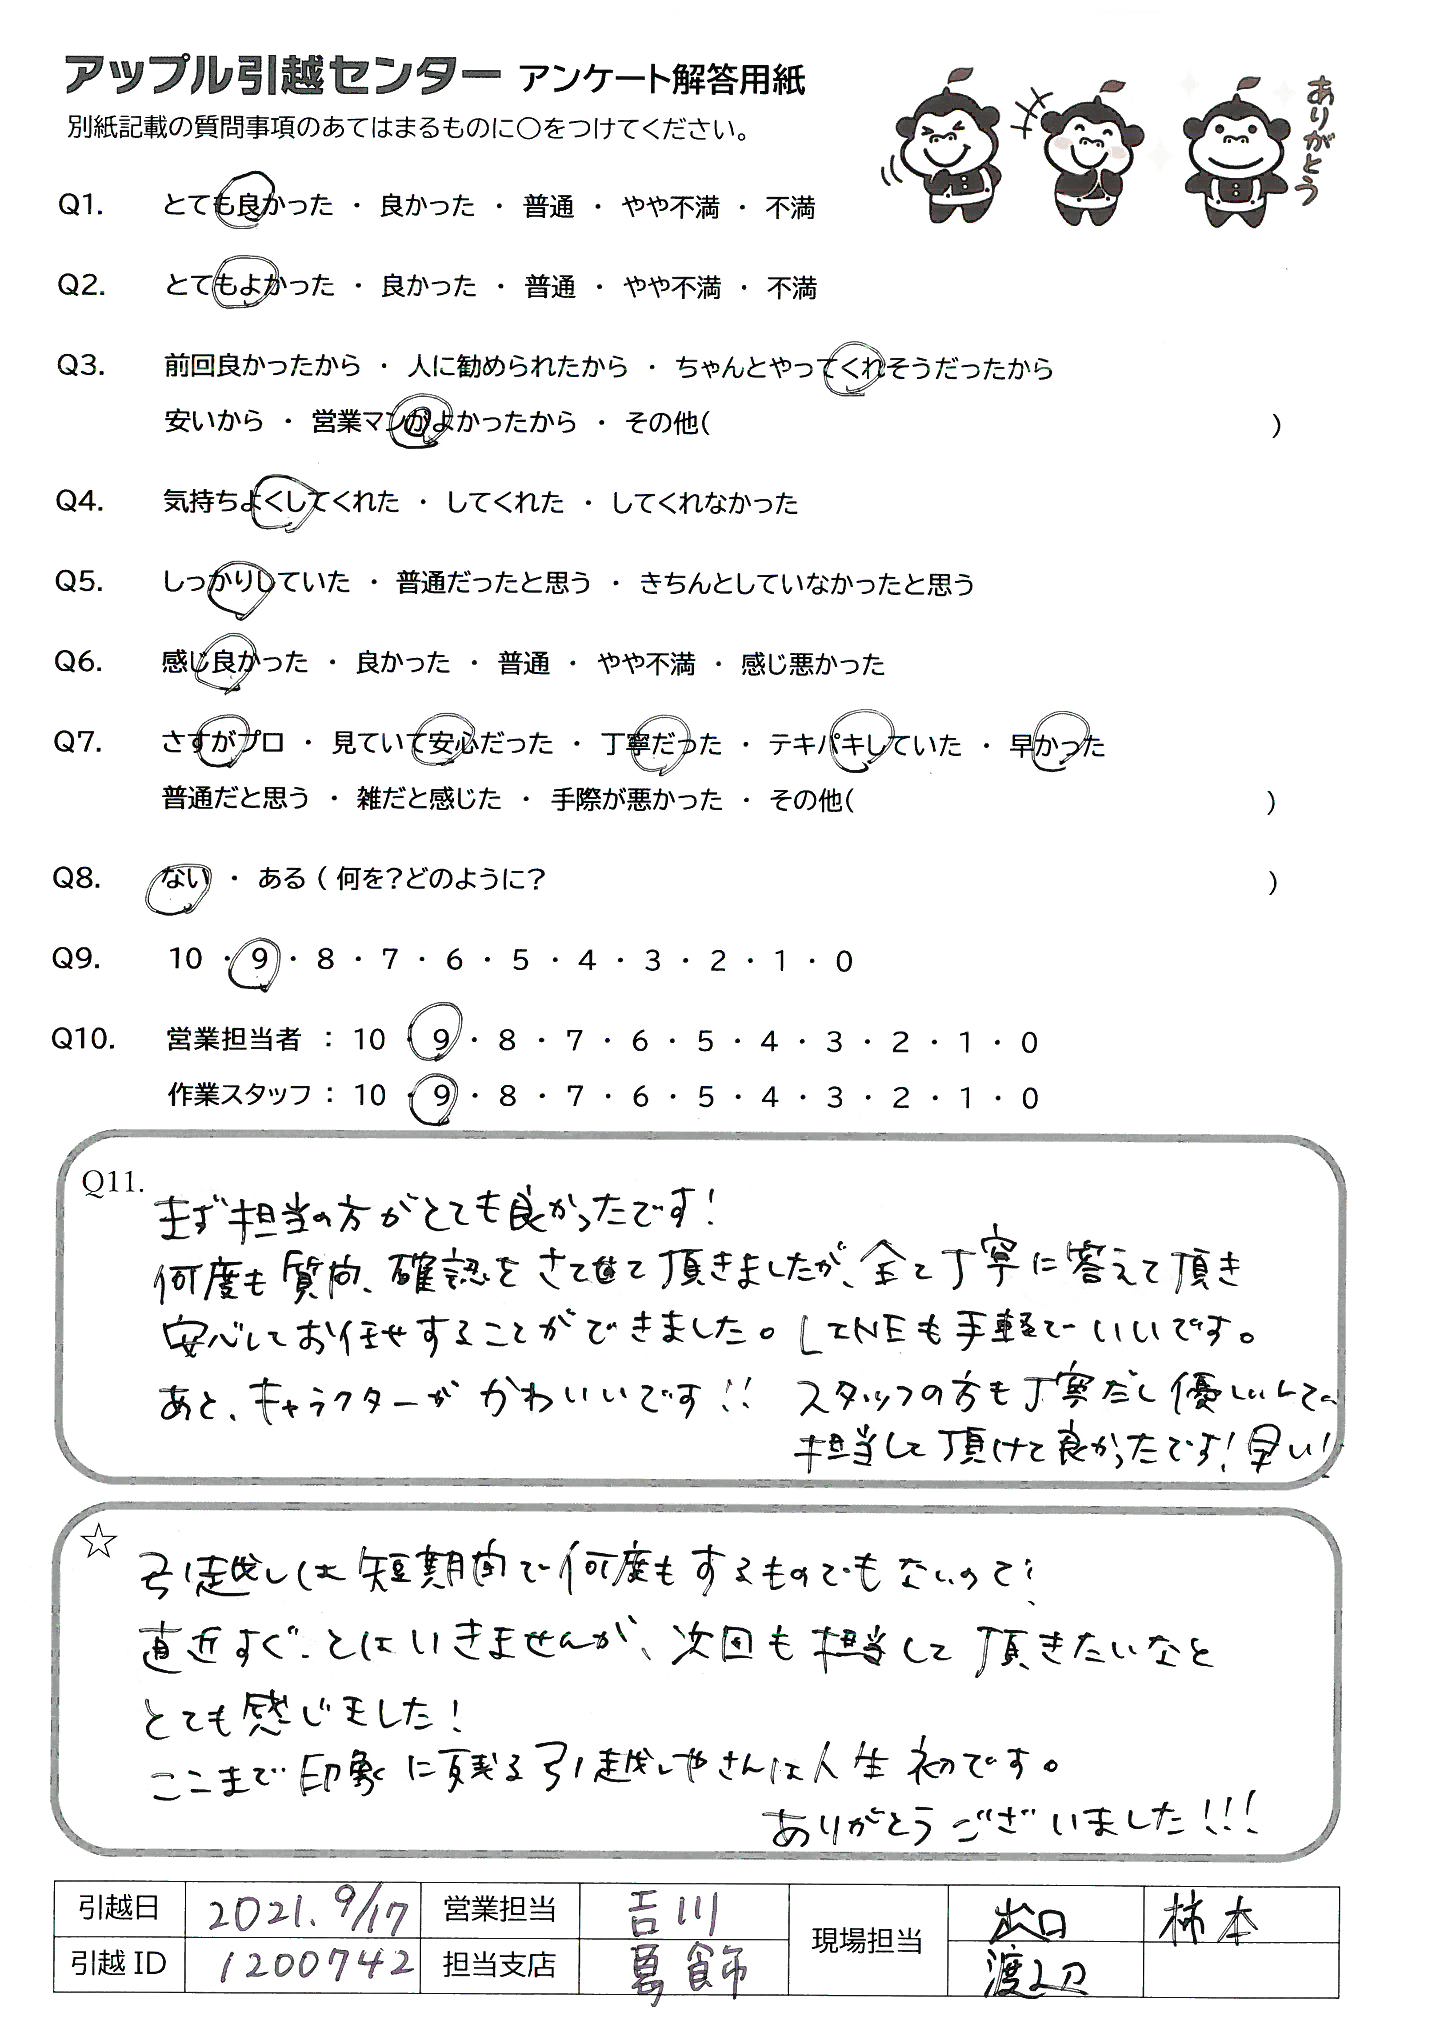 アップル引越センター アンケート解答用紙
別紙記載の質問事項のあてはまるものに〇をつけてください。
ありがとう
Q1. とても良かった ・ 良かった ・ 普通 ・ やや不満 ・ 不満
Q2. とてもよかった ・ 良かった ・ 普通 ・ やや不満 ・ 不満
Q3. 前回良かったから ・ 人に勧められたから ・ ちゃんとやってくれそうだったから
安いから ・ 営業マンがよかったから ・ その他( )
Q4. 気持ちよくしてくれた ・ してくれた ・ してくれなかった
Q5. しっかりしていた ・ 普通だったと思う ・ きちんとしていなかったと思う
Q6. 感じ良かった ・ 良かった ・ 普通 ・ やや不満 ・ 感じ悪かった
Q7. さすがプロ ・ 見ていて安心だった ・ 丁寧だった ・ テキパキしていた ・ 早かった
普通だと思う ・ 雑だと感じた ・ 手際が悪かった ・ その他( )
Q8. ない ・ ある ( 何を?どのように? )
Q9. 10 ・ 9 ・ 8 ・ 7 ・ 6 ・ 5 ・ 4 ・ 3 ・ 2 ・ 1 ・ 0
Q10. 営業担当者 : 10 ・ 9 ・ 8 ・ 7 ・ 6 ・ 5 ・ 4 ・ 3 ・ 2 ・ 1 ・ 0
作業スタッフ : 10 ・ 9 ・ 8 ・ 7 ・ 6 ・ 5 ・ 4 ・ 3 ・ 2 ・ 1 ・ 0
Q11.
まず担当の方がとても良かったです!
何度も質問、確認をさせて頂きましたが、全て丁寧に答えて頂き
安心してお任せすることができました。LINEも手軽でいいです。
あと、キャラクターがかわいいです!! スタッフの方も丁寧だし優しいし
担当して頂けて良かったです!早い!
☆
引越しは短期間で何度もするものでもないので
直近すぐ、とはいきませんが、次回も担当して頂きたいなと
とても感じました!
ここまで印象に残る引越しやさんは人生初です。
ありがとうございました!!!
引越日 2021.9/17 営業担当 吉川 現場担当 出口 柿本
引越ID 1200742 担当支店 葛飾 渡辺